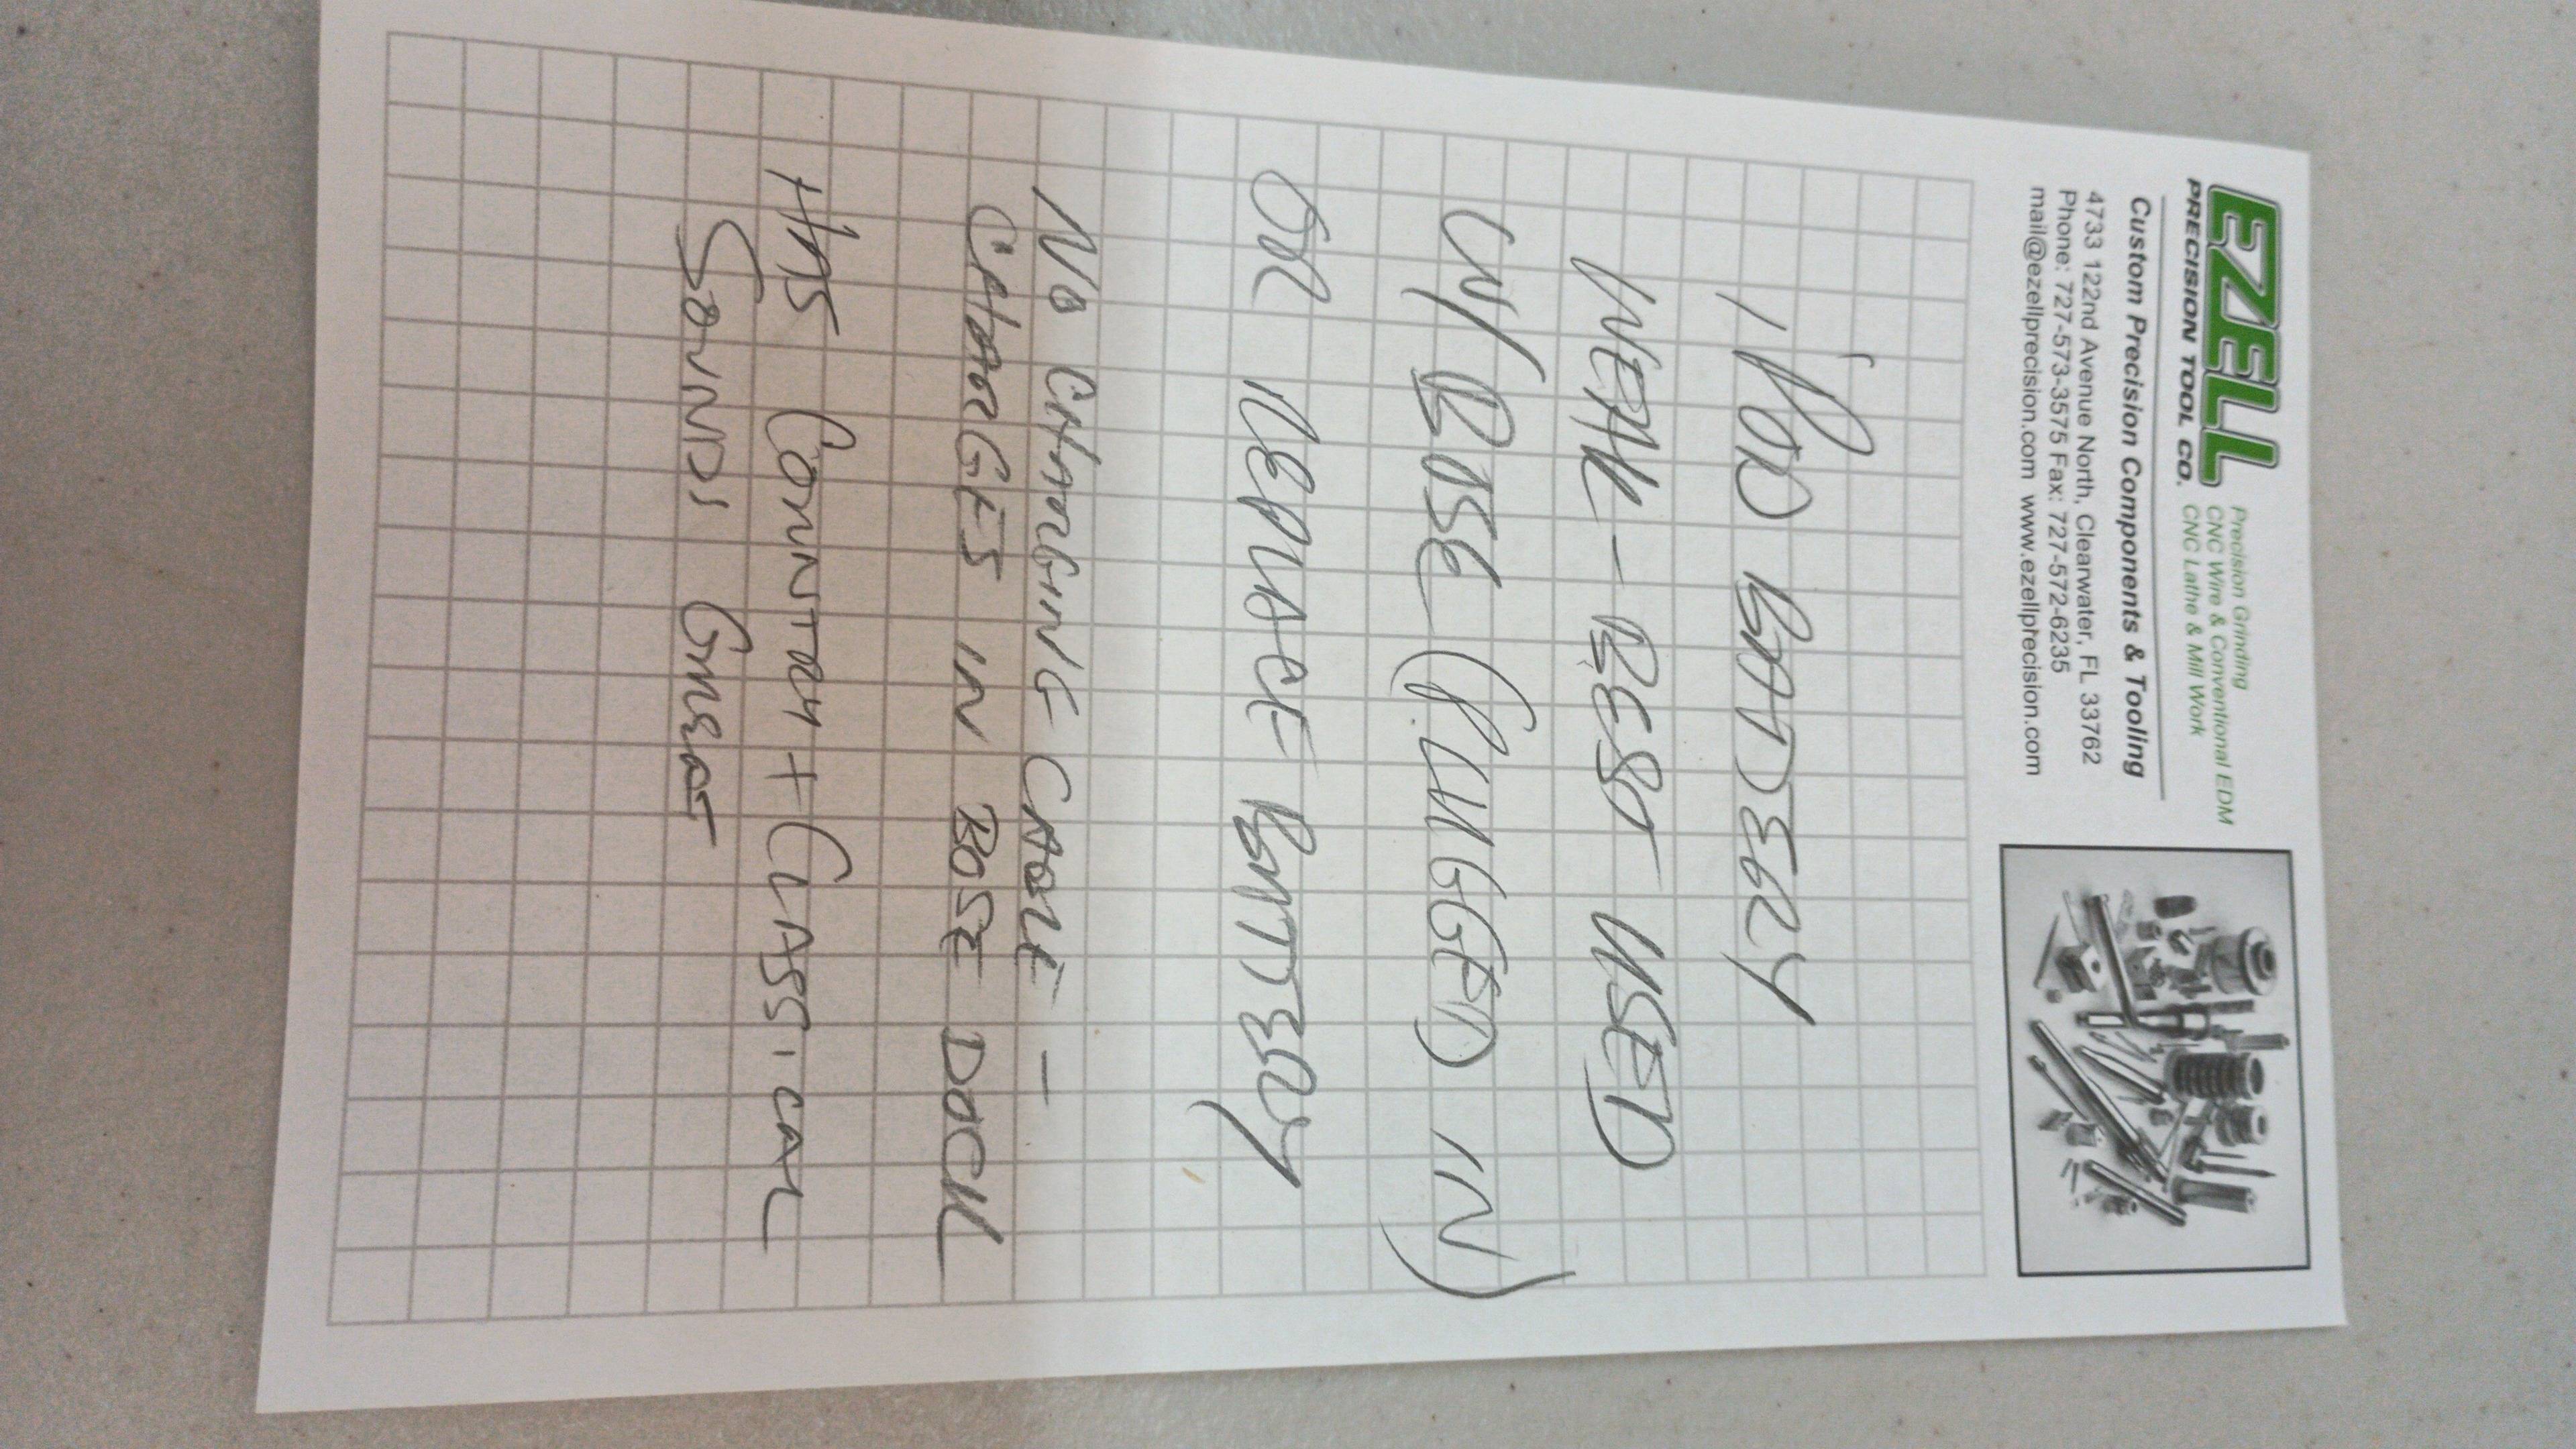 EZELL
PRECISION TOOL CO.
Precision Grinding
CNC Wire & Conventional EDM
CNC Lathe & Mill Work
Custom Precision Components & Tooling
4733 122nd Avenue North, Clearwater, FL 33762
Phone: 727-573-3575 Fax: 727-572-6235
mail@ezellprecision.com www.ezellprecision.com
iPOD BATTERY
WEAK - BEST USED
W/ BOSE (PLUGGED IN)
OR REPLACE BATTERY
NO CHARGING CABLE -
CHARGES IN BOSE DOCK
HAS COUNTRY + CLASSICAL
SOUNDS GREAT